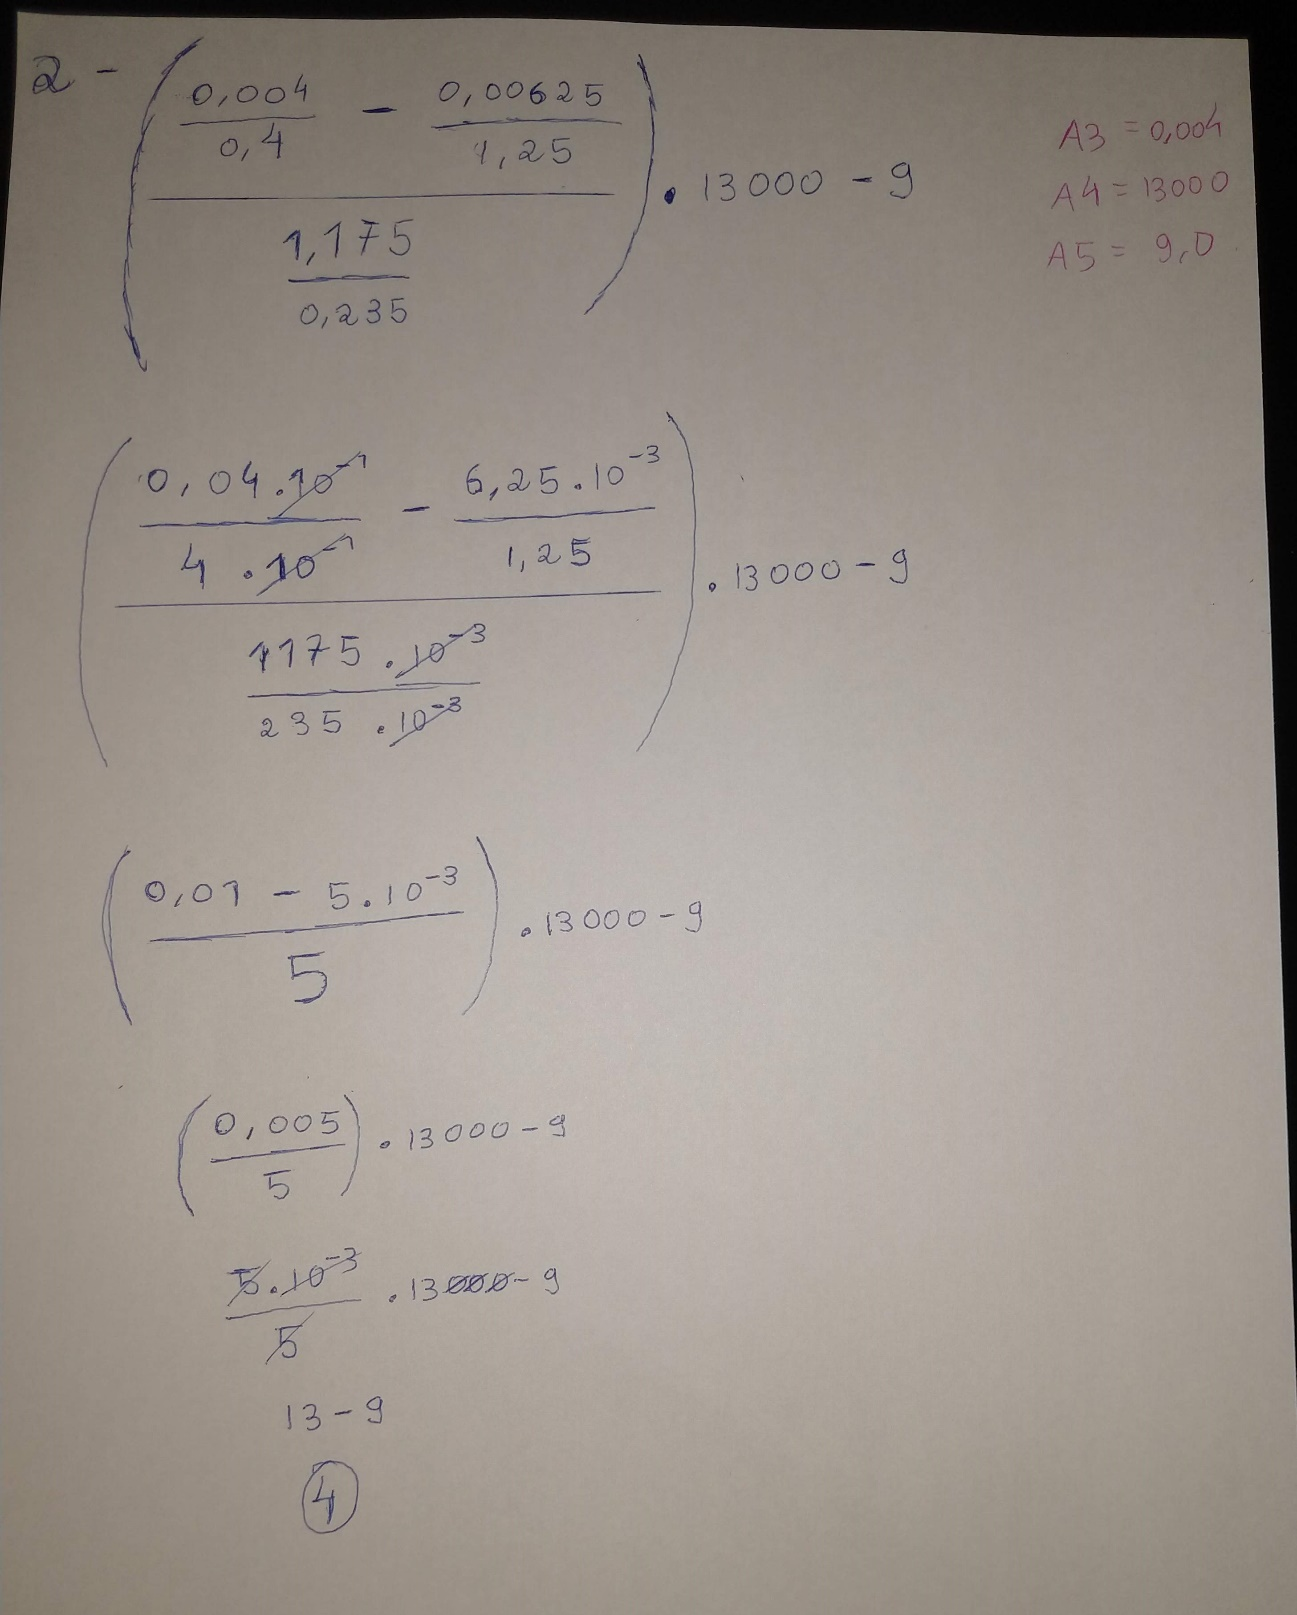 2 - ( (0,004 / 0,4 - 0,00625 / 1,25) / (1,175 / 0,235) ) . 13000 - 9
A3 = 0,004
A4 = 13000
A5 = 9,0
( (0,04 . 10^-1 / 4 . 10^-1 - 6,25 . 10^-3 / 1,25) / (1175 . 10^-3 / 235 . 10^-3) ) . 13000 - 9
( (0,01 - 5 . 10^-3) / 5 ) . 13000 - 9
( 0,005 / 5 ) . 13000 - 9
5 . 10^-3 / 5 . 13000 - 9
13 - 9
4